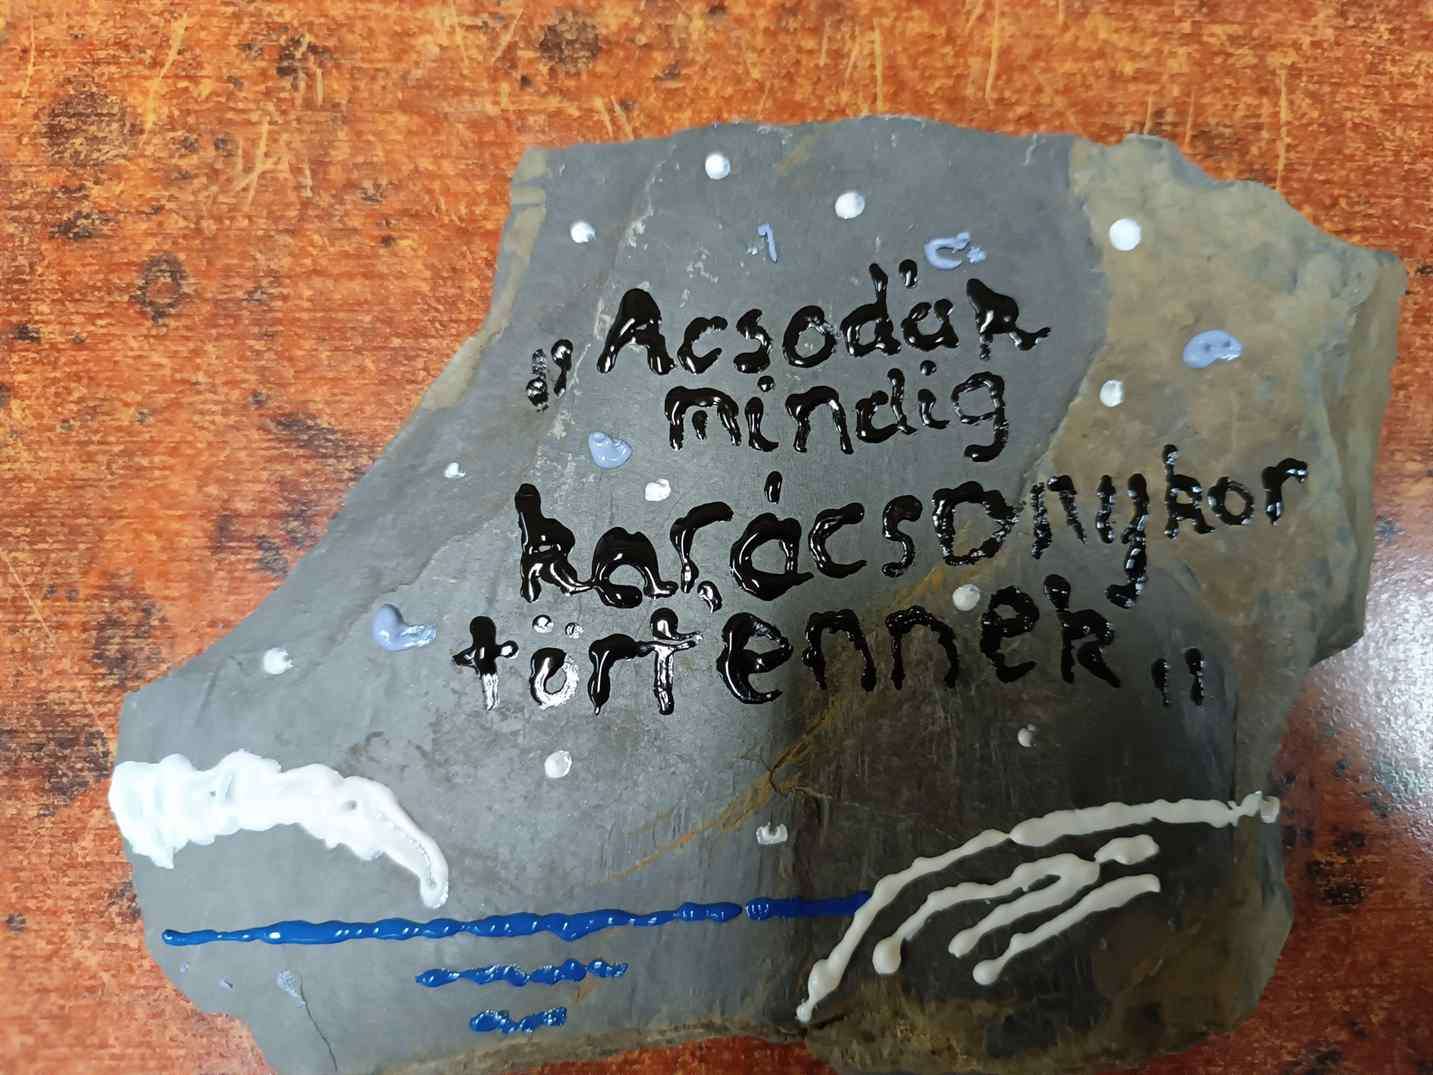 „Acsodák
mindig
karácsonykor
törtennek"